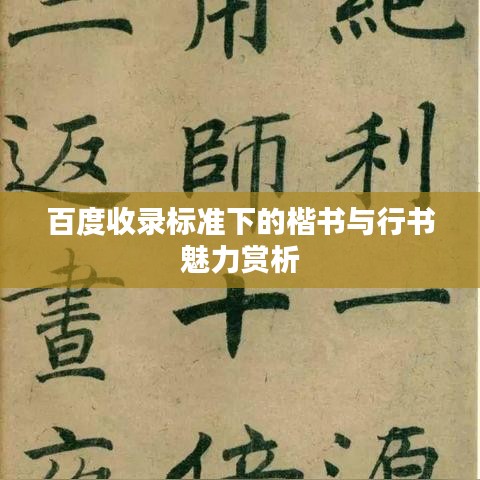 絶利一源
用師十倍
三返晝夜
百度收录标准下的楷书与行书
魅力赏析